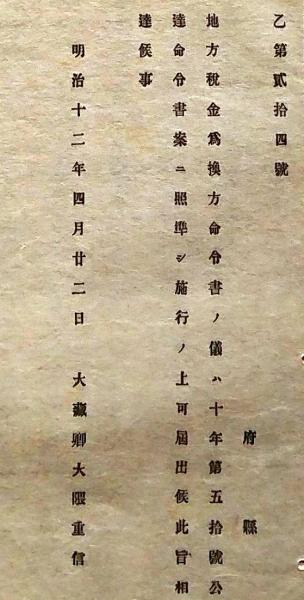 乙第貳拾四號
府縣
地方稅金爲換方命令書ノ儀ハ十年第五拾號公
達命令書案ニ照準シ施行ノ上可屆出候此旨相
達候事
明治十二年四月廿二日 大藏卿大隈重信